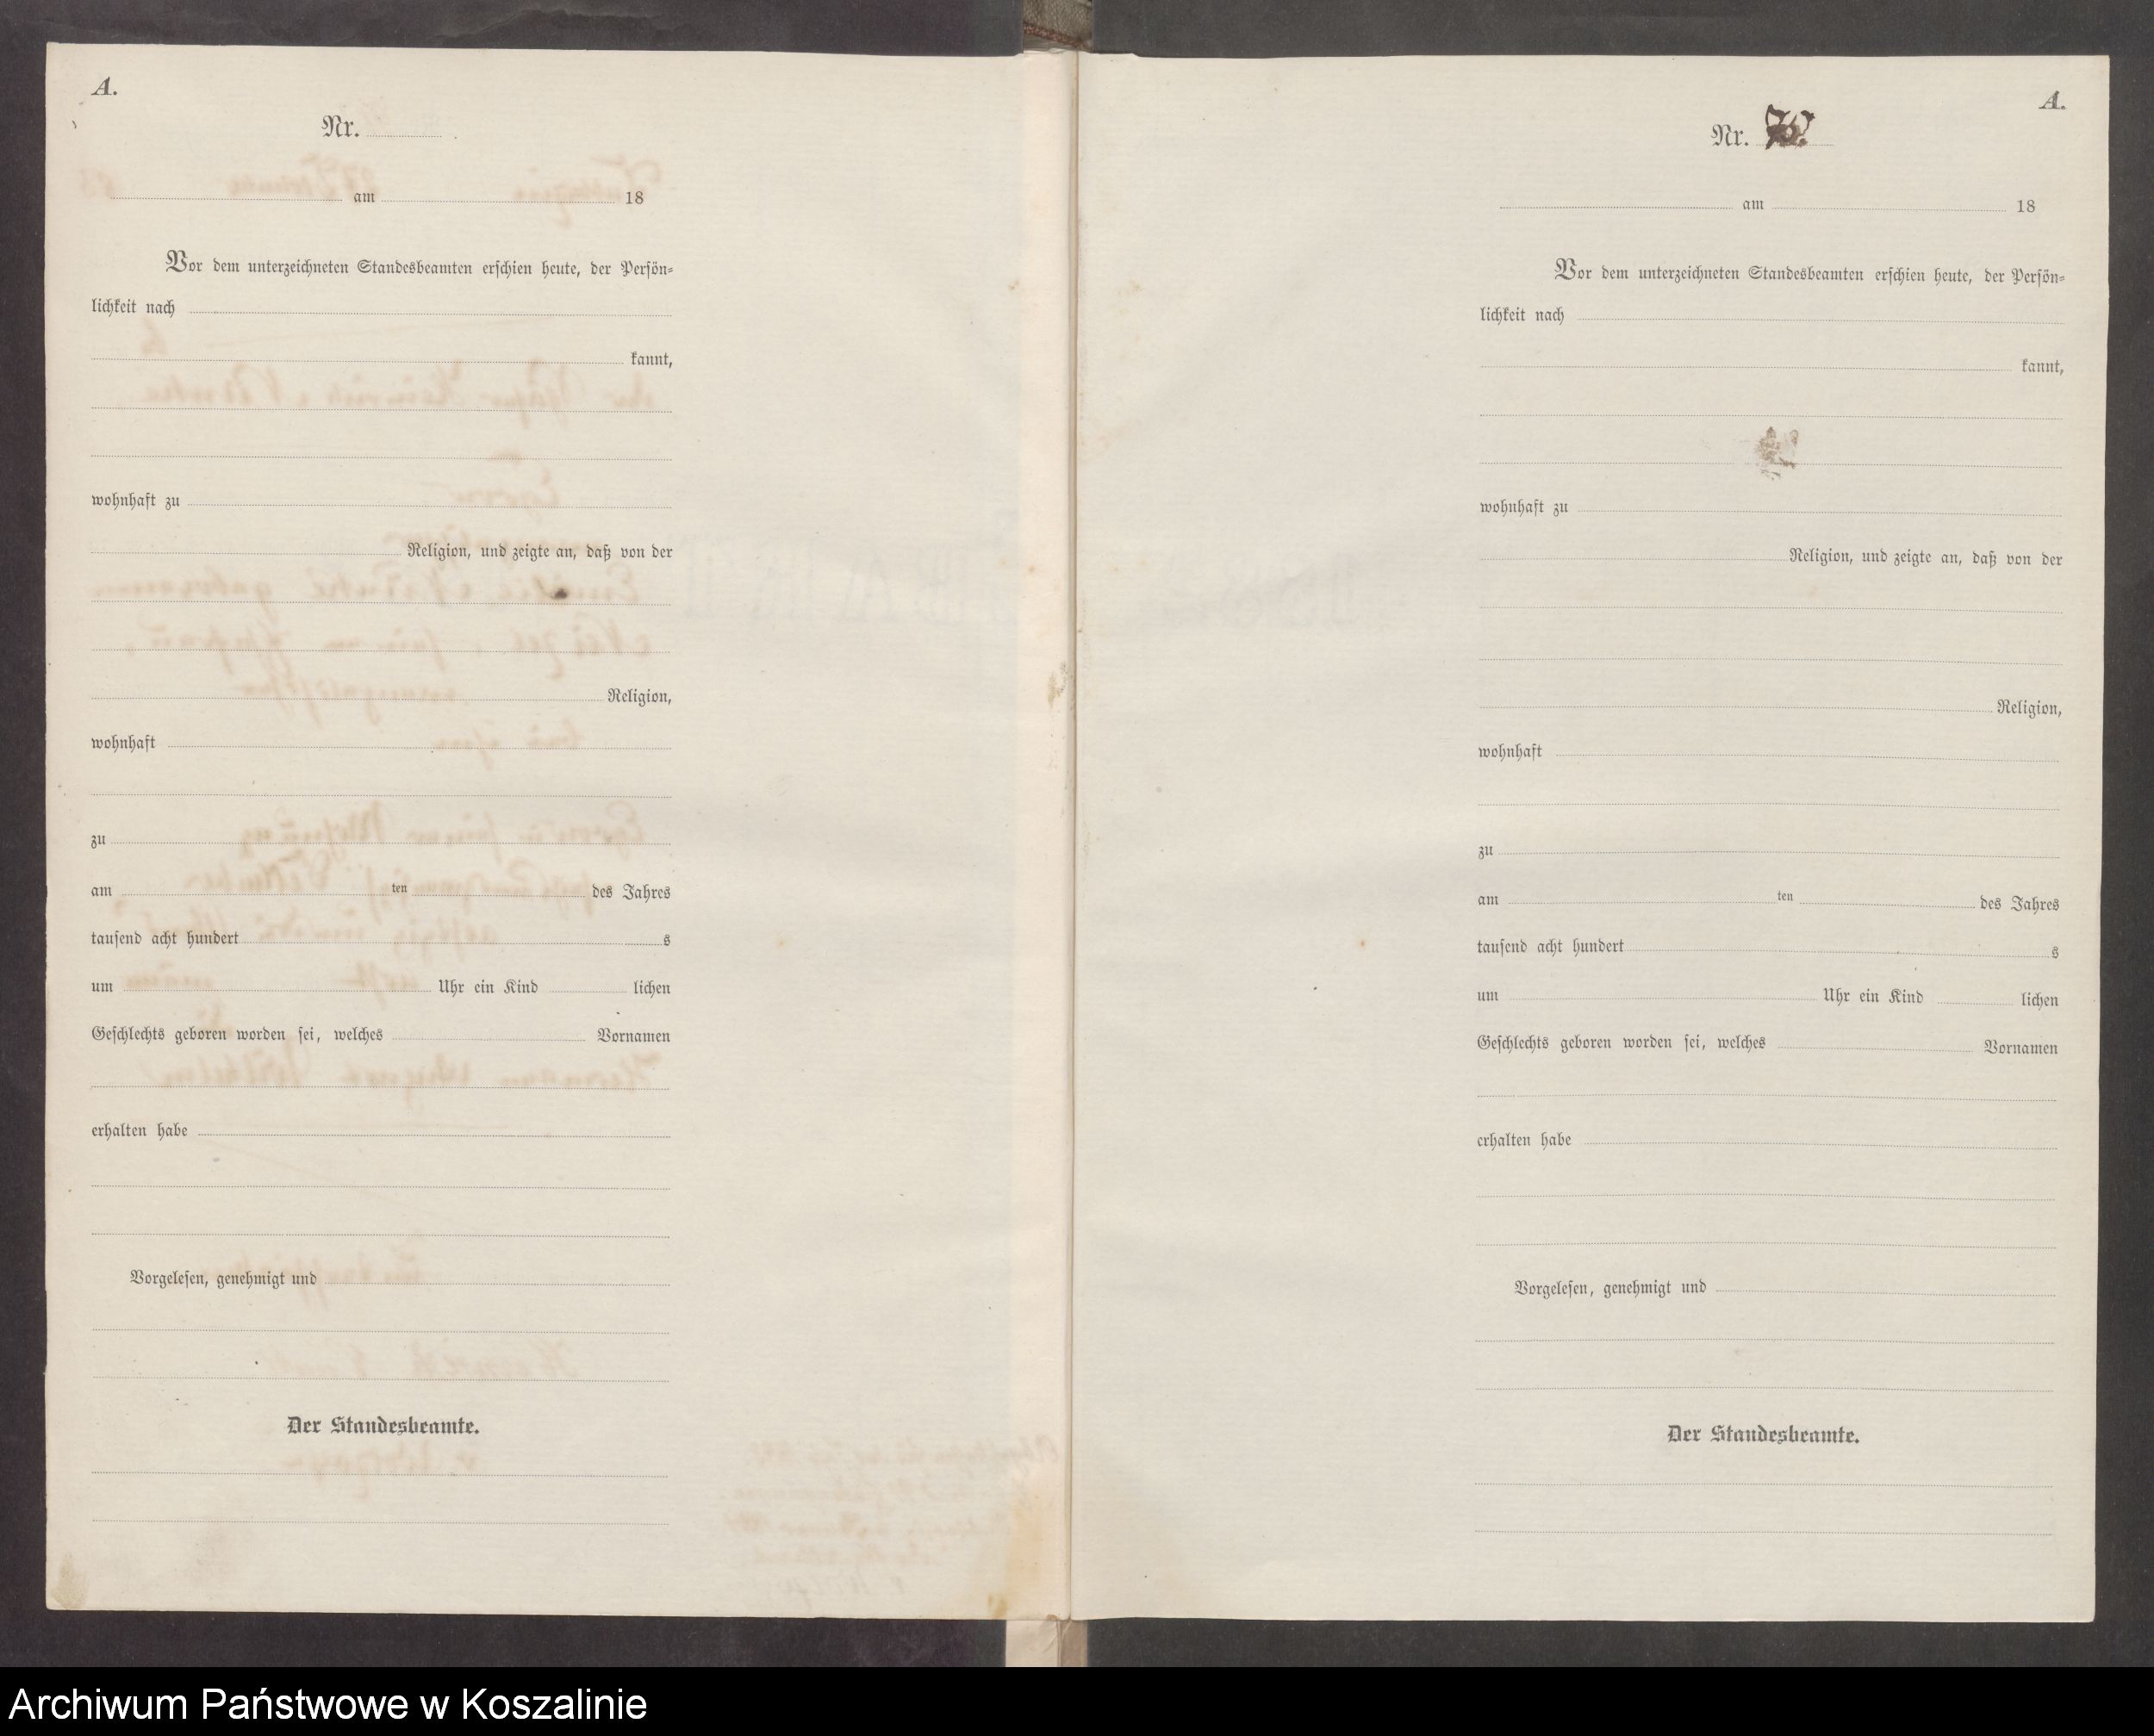 A.
Nr.
am 18
Vor dem unterzeichneten Standesbeamten erschien heute, der Persön-
lichkeit nach
kannt,
wohnhaft zu
Religion, und zeigte an, daß von der
Religion,
wohnhaft
zu
am ten des Jahres
tausend acht hundert s
um Uhr ein Kind lichen
Geschlechts geboren worden sei, welches Vornamen
erhalten habe
Vorgelesen, genehmigt und
Der Standesbeamte.
A.
Nr.
am 18
Vor dem unterzeichneten Standesbeamten erschien heute, der Persön-
lichkeit nach
kannt,
wohnhaft zu
Religion, und zeigte an, daß von der
Religion,
wohnhaft
zu
am ten des Jahres
tausend acht hundert s
um Uhr ein Kind lichen
Geschlechts geboren worden sei, welches Vornamen
erhalten habe
Vorgelesen, genehmigt und
Der Standesbeamte.
Archiwum Państwowe w Koszalinie